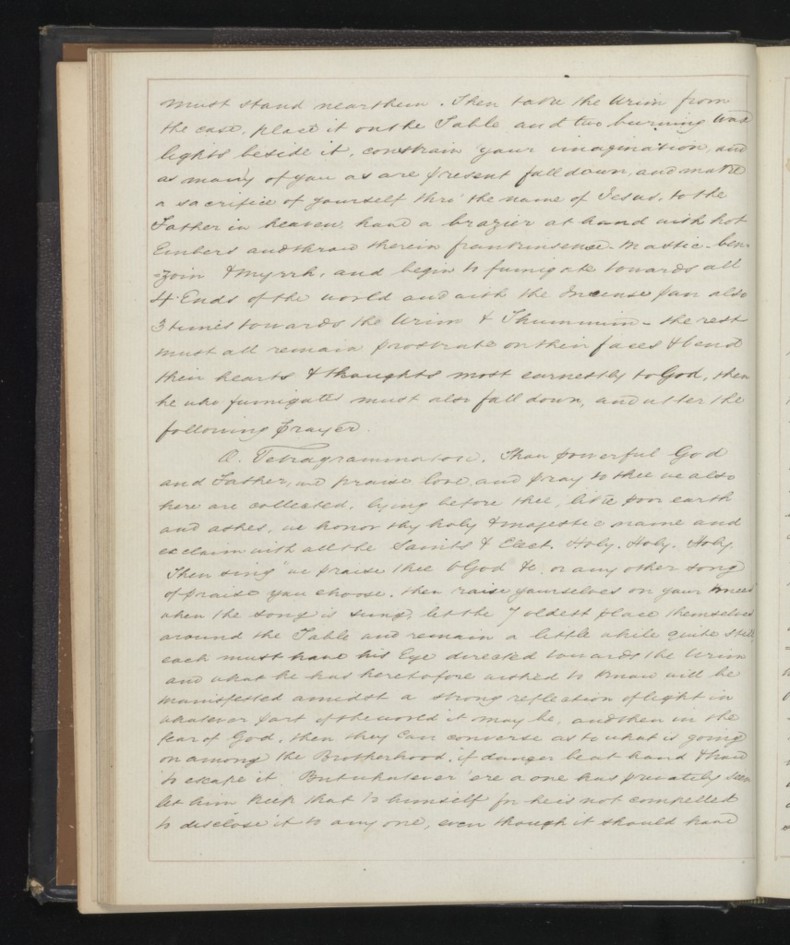 must stand near them. Then take the Urim from
the case, place it on the Table and two burning wax
lights beside it, constrain your imagination, and
as many of you as are present fall down, and make
a sacrifice of yourself thro' the name of Jesus, to the
Father in heaven, have a brazier at hand with hot
Embers and throw therein frankinsence - Mastic - ben-
=zoin & Myrrh, and begin to fumigate towards all
4 Ends of the world and with the Incense pan also
3 times towards the Urim & Thummim - the rest
must all remain prostrate on their faces & bend
their hearts & thoughts most earnestly to God, then
he who fumigates must also fall down, and utter the
following prayer.
O. Tetragrammaton. Thou powerful God
and Father, we praise love and pray to thee we also
here are collected, lying before thee, like poor earth
and ashes, we honor thy holy & majestic name and
exclaim with all the Saints & Elect. Holy. Holy. Holy.
Then sing "we praise thee O God &c. or any other song
of praise you choose. then raise yourselves on your knees
when the song is sung, let the 7 oldest place themselves
around the Table and remain a little while quite still
each must have his Eye directed towards the Urim
and what he has heretofore wished to know will be
manifested amidst a strong reflection of light in
whatever part of the world it may be, and then in the
fear of God, then they can converse as to what is going
on among the Brotherhood, if danger be at hand & how
to escape it. But whatever ere a one has privately seen
let him keep that to himself for he is not compelled
to disclose it to any one, even though it should have